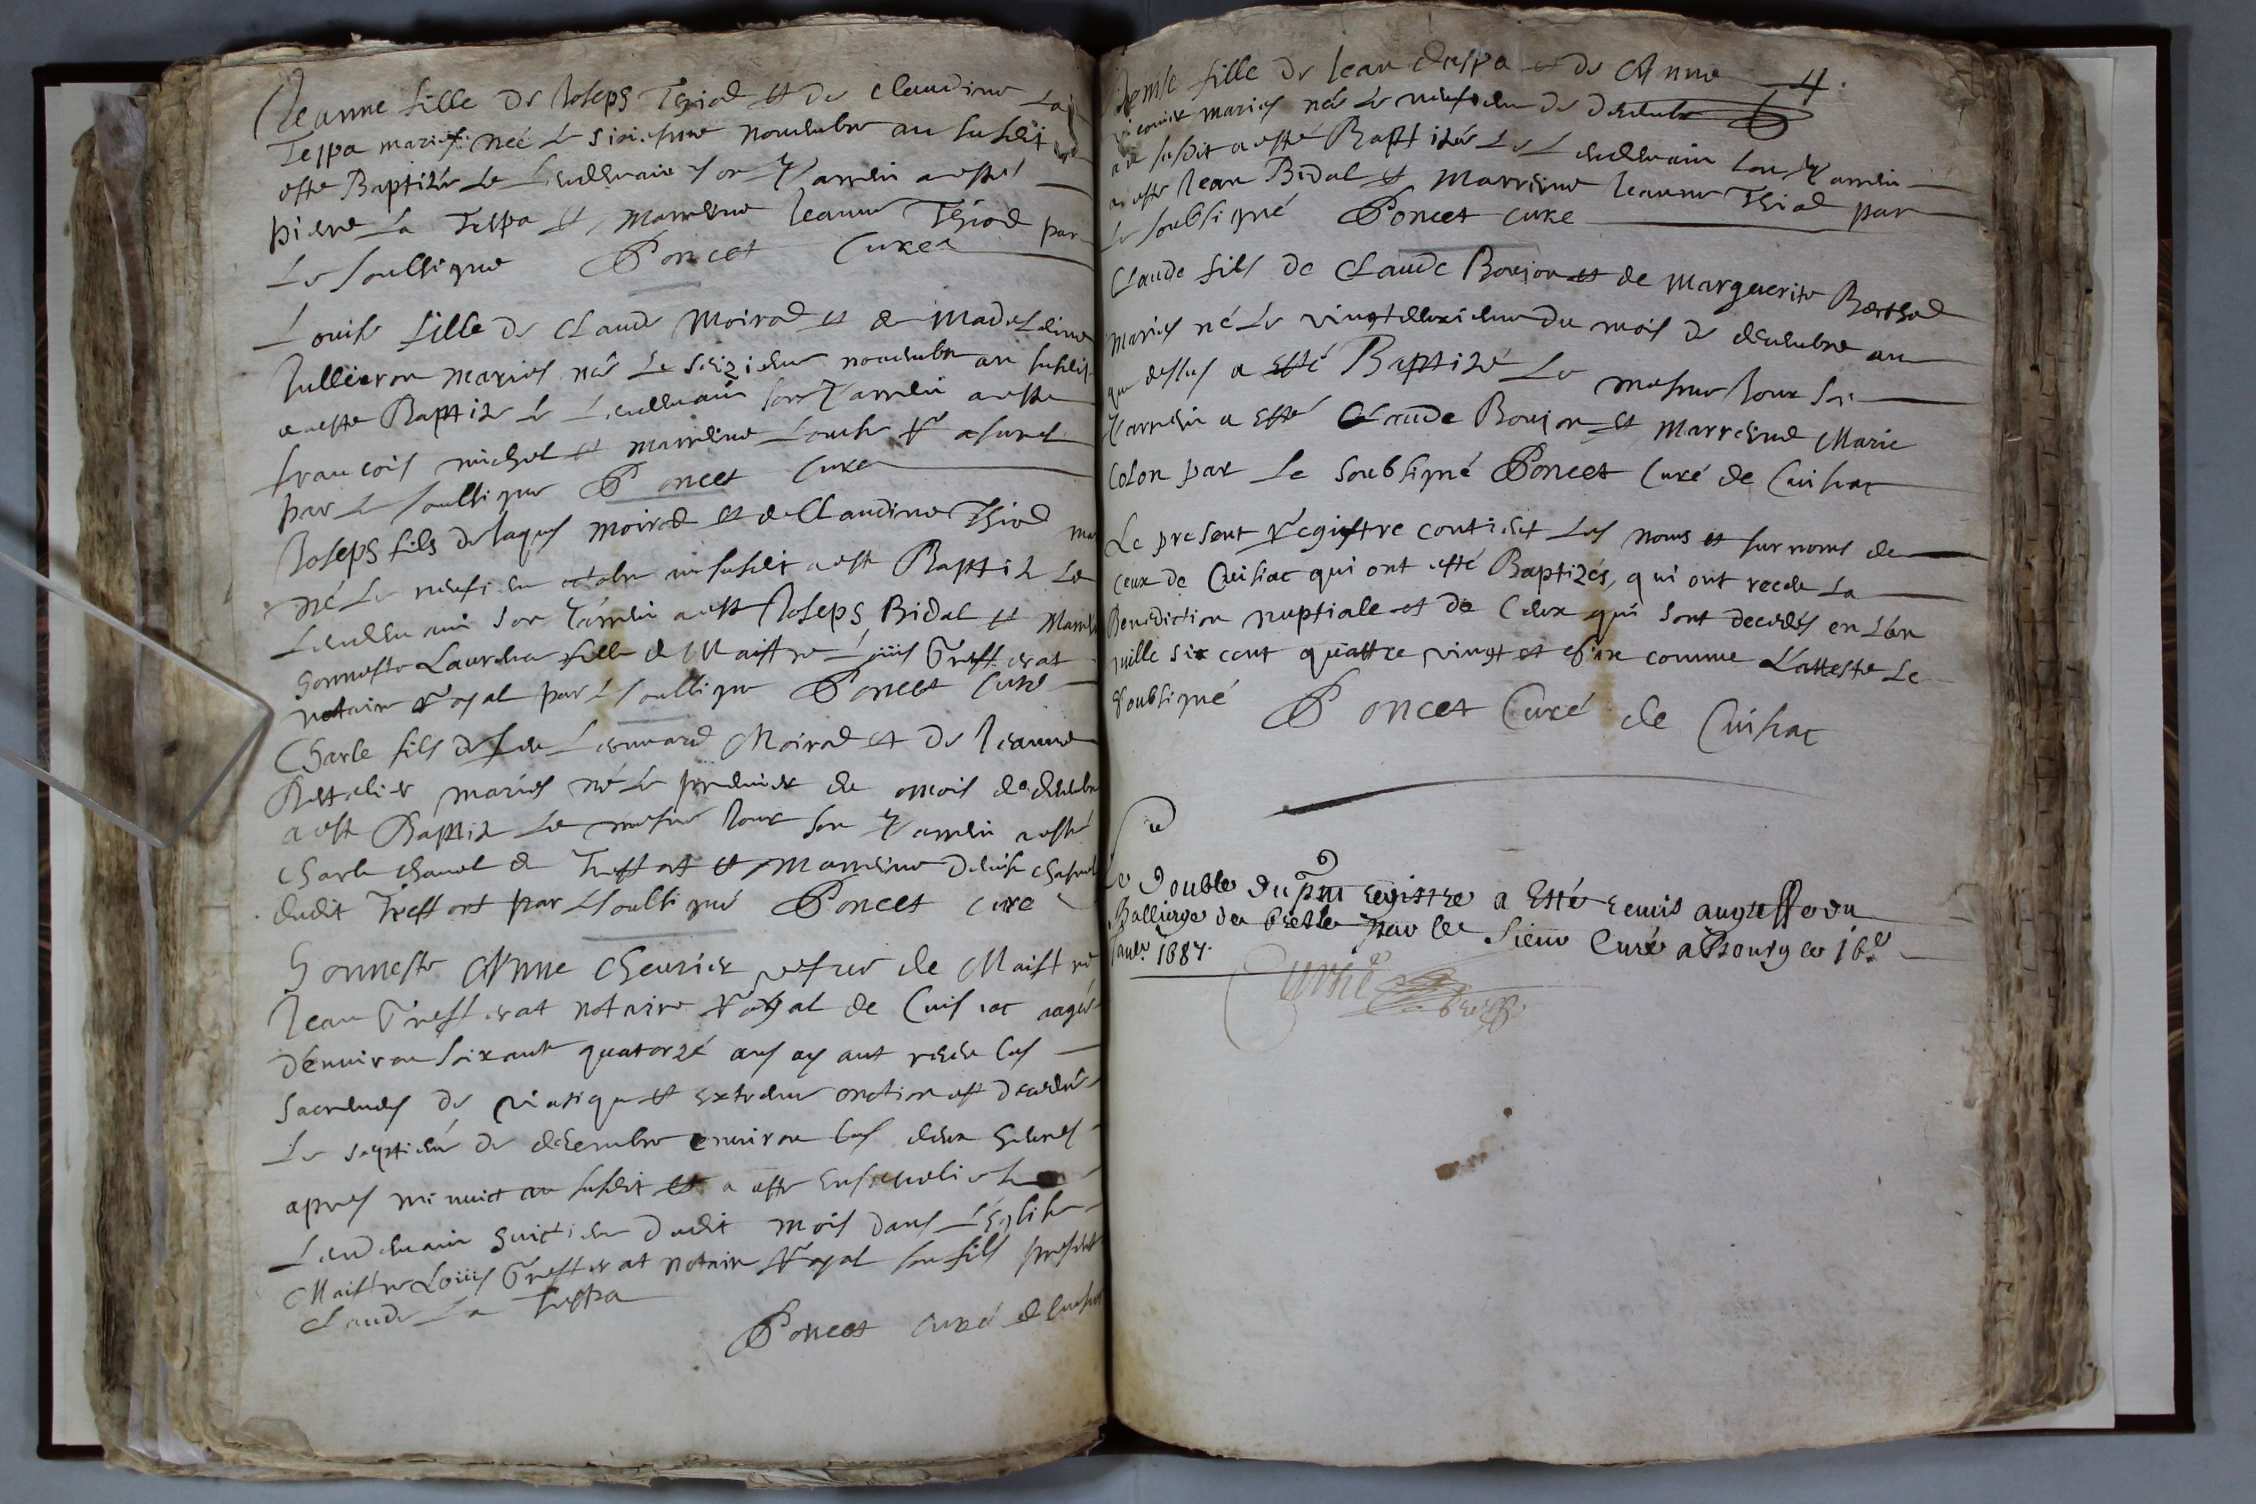 Jeanne fille de Joseph Thiod et de Claudine La
Tespa mariés née le sixiesme novembre an susdit
esté Baptizée le lendemain son parrein a esté
piere La Tespa et marreine Jeanne Thiod par
le soubsigné Poncet Curé
Louise fille de Claude Moirod et de Madeleine
Jullieron mariés née le seizieme novembre an susdit
a esté Baptizé le lendemain son parrein a esté
francois michel et marreine Louise
par le soubsigné Poncet Curé
Joseph fils de Jaques Moirod et de Claudine Thiod
né le neufieme octobre an susdit a esté Baptizé le
lendemain son parrein a esté Joseph Bidal et
honneste fille de Maistre Loüis Greffierat
notaire royal par le soubsigné Poncet Curé
Charle fils de feu Leonnard Moirod et de Jeanne
mariés né le premier du mois de decembre
a esté Baptizé le mesme Jour son parrein a esté
Charle de Treffort et Marreine Denise
dudit Treffort par le soubsigné Poncet Curé
honneste Anne Chevrier vefve de Maistre
Jean Greffierat notaire royal de Cuisiac aagée
d'environ soixante quatorze ans ayant receu les
sacremens de viatique et extreme onction est decedée
le septieme de decembre environ les deux heures
apres minuict an susdit et a esté ensepvelie le
lendemain huictieme dudit mois dans L'Eglise
Maistre Loüis Greffierat notaire Royal son fils present
Claude La Tespa
Poncet curé de Cuisiac
Denise fille de Jean duspa et de Anne 4.
mariés née le neufieme de decembre
an susdit a esté Baptizée le lendemain son parrein
a esté Jean Bidal et Marreine Jeanne Thiod par
le soubsigné Poncet Curé
Claude fils de Claude Boujon et de Marguerite Berthod
mariés né le vingtdeuxieme du mois de decembre an
que dessus a Esté Baptizé le mesme Jour son
Parrein a esté Claude Boujon et Marreine Marie
Colon par le soubsigné Poncet Curé de Cuisiac
Le present Registre contient les noms et surnoms de
ceux de Cuisiac qui ont esté Baptizés, qui ont receu La
Benediction nuptiale et de Ceux qui sont decedés en L'an
mille six cent quattre vingt et six comme L'atteste Le
soubsigné Poncet Curé de Cuisiac
Le Double du pnt registre a Esté remis au greffe du
Balliage de Bresse par le Sieur Curé a Bourg le 16e
Janvr 1687.